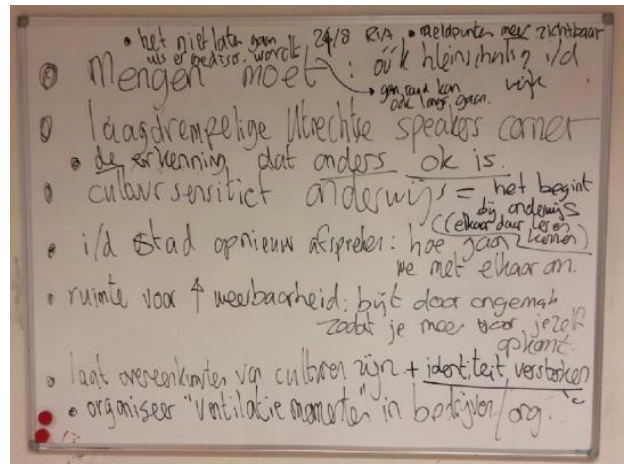 • het niet laten gaan 24/8 RIA • meldpunten meer zichtbaar
als er gediscr. wordt
• Mengen moet : óók kleinschalig i/d
wijk
→ gen. raad kan
ook langs gaan.
• laagdrempelige Utrechtse speakers corner
• de erkenning dat anders ok is.
• cultuursensitief onderwijs = het begint
bij onderwijs
(elkaar daar leren
kennen)
• i/d stad opnieuw afspreken: hoe gaan
we met elkaar om.
• ruimte voor ↑ weerbaarheid: bijt door ongemak
zodat je meer voor jezelf
opkomt.
• laat overeenkomsten van culturen zijn + identiteit versterken
• organiseer "ventilatie momenten" in bedrijven/org.